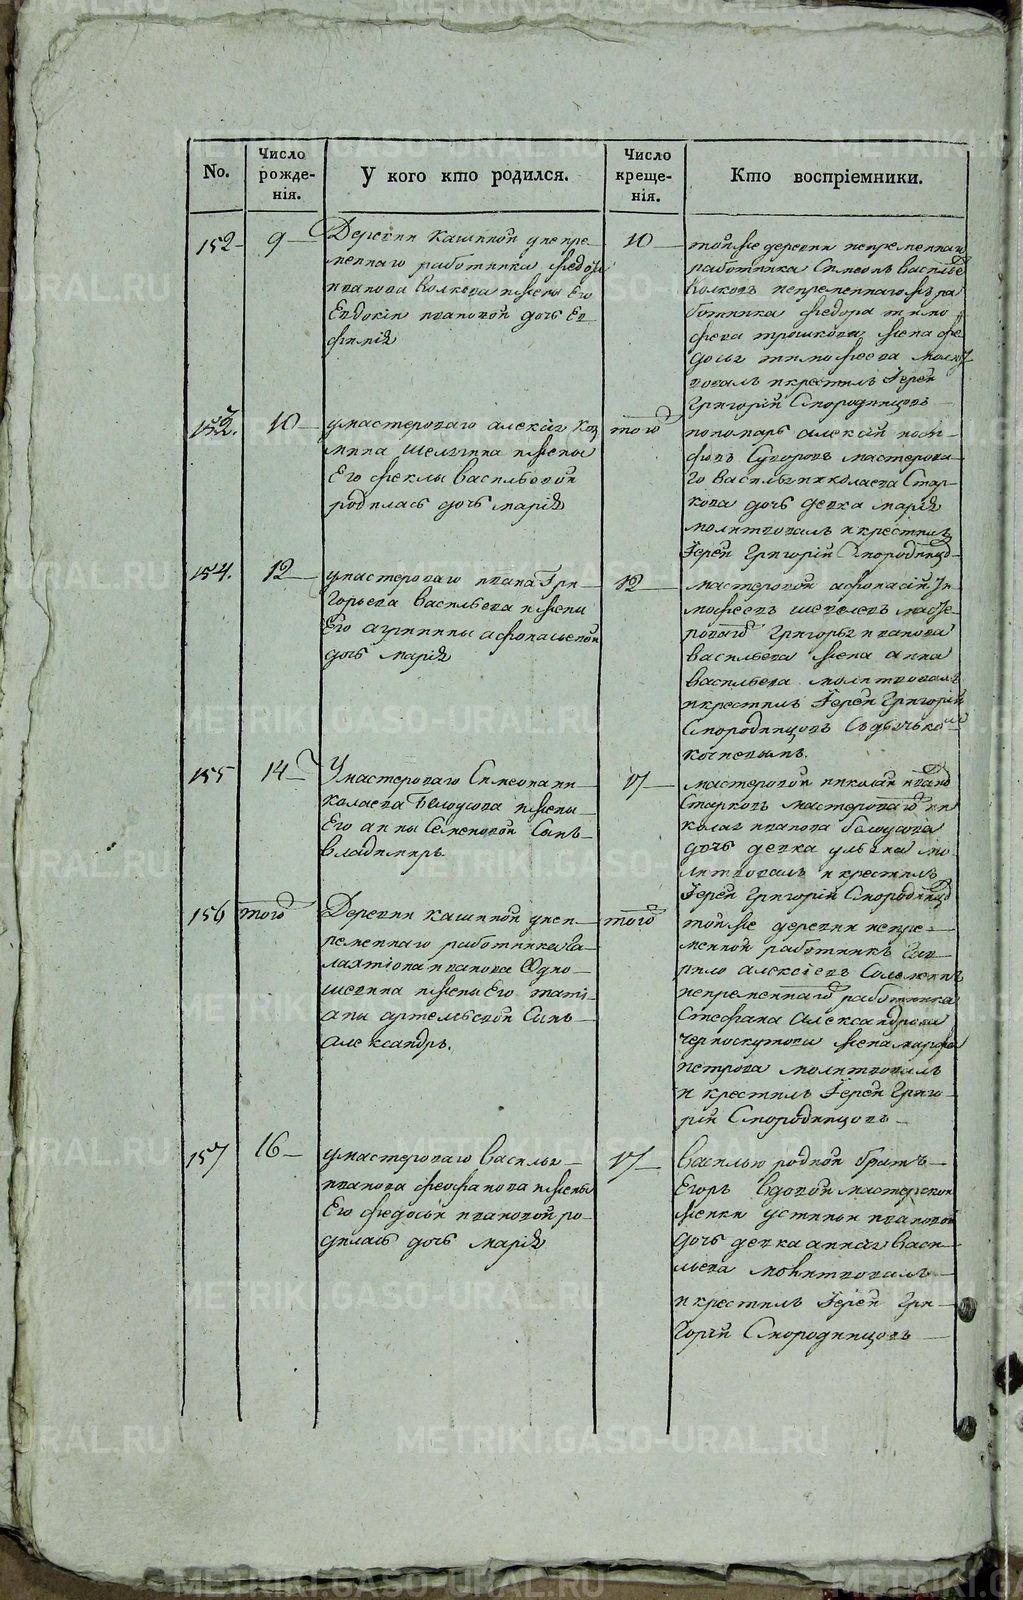 No.
Число рожде-нія.
У кого кто родился.
Число креще-нія.
Кто воспріемники.
152
9
Деревни кашиной у непре-
меннаго работника Федора
иванова волкова и жены Его
Евдокіи ивановой дочь Ев-
фимія
10
тойже деревни непременнаго
работника Симеонъ василье
волковъ непременнагожъ ра
ботника Федора тимо
феева трошкова жена фе
досья тимофеева молит
вовалъ и крестилъ Іерей
Григорій Смородинцовъ
153.
10
у мастероваго алексія коз
мина шелгина и жены
Его феклы васильевой
родилась дочь марія
того
пономарь алексій
Суворовъ мастерова-
го василья николаева Стар-
кова дочь девка марія
молитвовалъ и крестилъ
Іерей Григорій Смородинцо
154.
12
у мастероваго ивана Гри-
горьева васильева и жены
Его агрипины афонасьевой
дочь марія
12
мастеровой афонасій ти
мофеевъ шевелевъ масте-
роваго Григорья иванова
васильева жена анна
васильева молитвовалъ
и крестилъ Іерей Григорій
Смородинцовъ Съ дьячько
кочневымъ.
155
14
У мастероваго Симеона ни
колаева Белоусова и жены
Его анны Семеновой Сынъ
владимиръ
17
мастеровой николай ивано
Старковъ мастероваго ни
колая иванова белоусова
дочь девка ульяна мо-
литвовалъ и крестилъ
Іерей Григорій Смородинцо
156
того
Деревни кашиной у неп-
ременнаго работника Га-
лахтіона иванова Одно-
шевина и жены Его тати-
аны артемьевой Сынъ
александръ.
того
тойже деревни непре-
менной работникъ Гав
рило алексіевъ
непременнаго работника
Стефана александрова
черноскутова жена марфа
петрова молитвовалъ
и крестилъ Іерей Григо-
рій Смородинцовъ
157
16
у мастероваго василья
иванова феофанова и жены
Его федосьи ивановой ро-
дилась дочь марія
17
василью родной братъ
Егоръ вдовой мастерской
женки устиньи ивановой
дочь девка анна васи-
льева молитвовалъ
и крестилъ Іерей Гри-
горій Смородинцовъ
METRIKI.GASO-URAL.RU